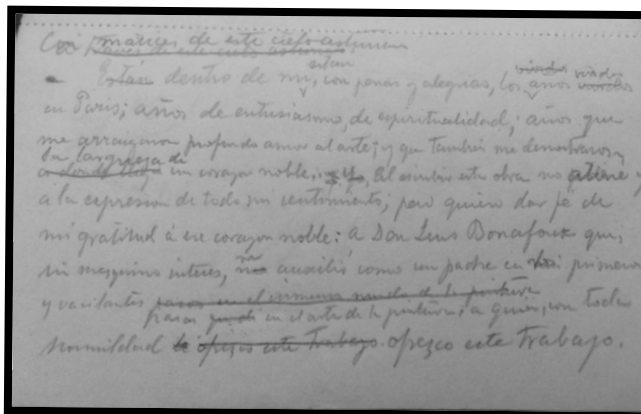 matices de este cielo asturiano
Están dentro de mi, están con penas y alegrias, los años vividos
en Paris; años de entusiasmo, de espiritualidad; años que
me arraigaron profundo amor al arte; y que también me demostraron
la largueza de
un corazon noble. El escribir esta obra no atiene
á la expresion de todo mi sentimiento; pero quiero dar fe de
mi gratitud á ese corazon noble: á Don Luis Bonafoux que,
sin mezquino interes, me auxilió como un padre en mis primeros
y vacilantes pasos en el inmenso mundo de la pintura
pasos en el arte de la pintura; a quien, con toda
humildad le ofrezco este trabajo. ofrezco este trabajo.